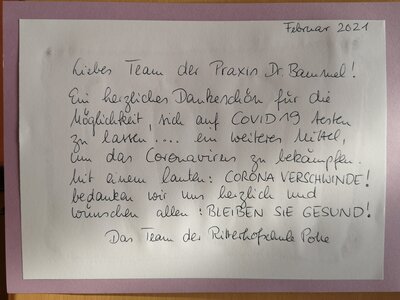 Februar 2021
Liebes Team der Praxis Dr. Bammel!
Ein herzliches Dankeschön für die
Möglichkeit, sich auf COVID 19 testen
zu lassen.... ein weiteres Mittel,
um das Coronavirus zu bekämpfen.
Mit einem lauten: CORONA VERSCHWINDE!
bedanken wir uns herzlich und
wünschen allen: BLEIBEN SIE GESUND!
Das Team der Ritterhofschule